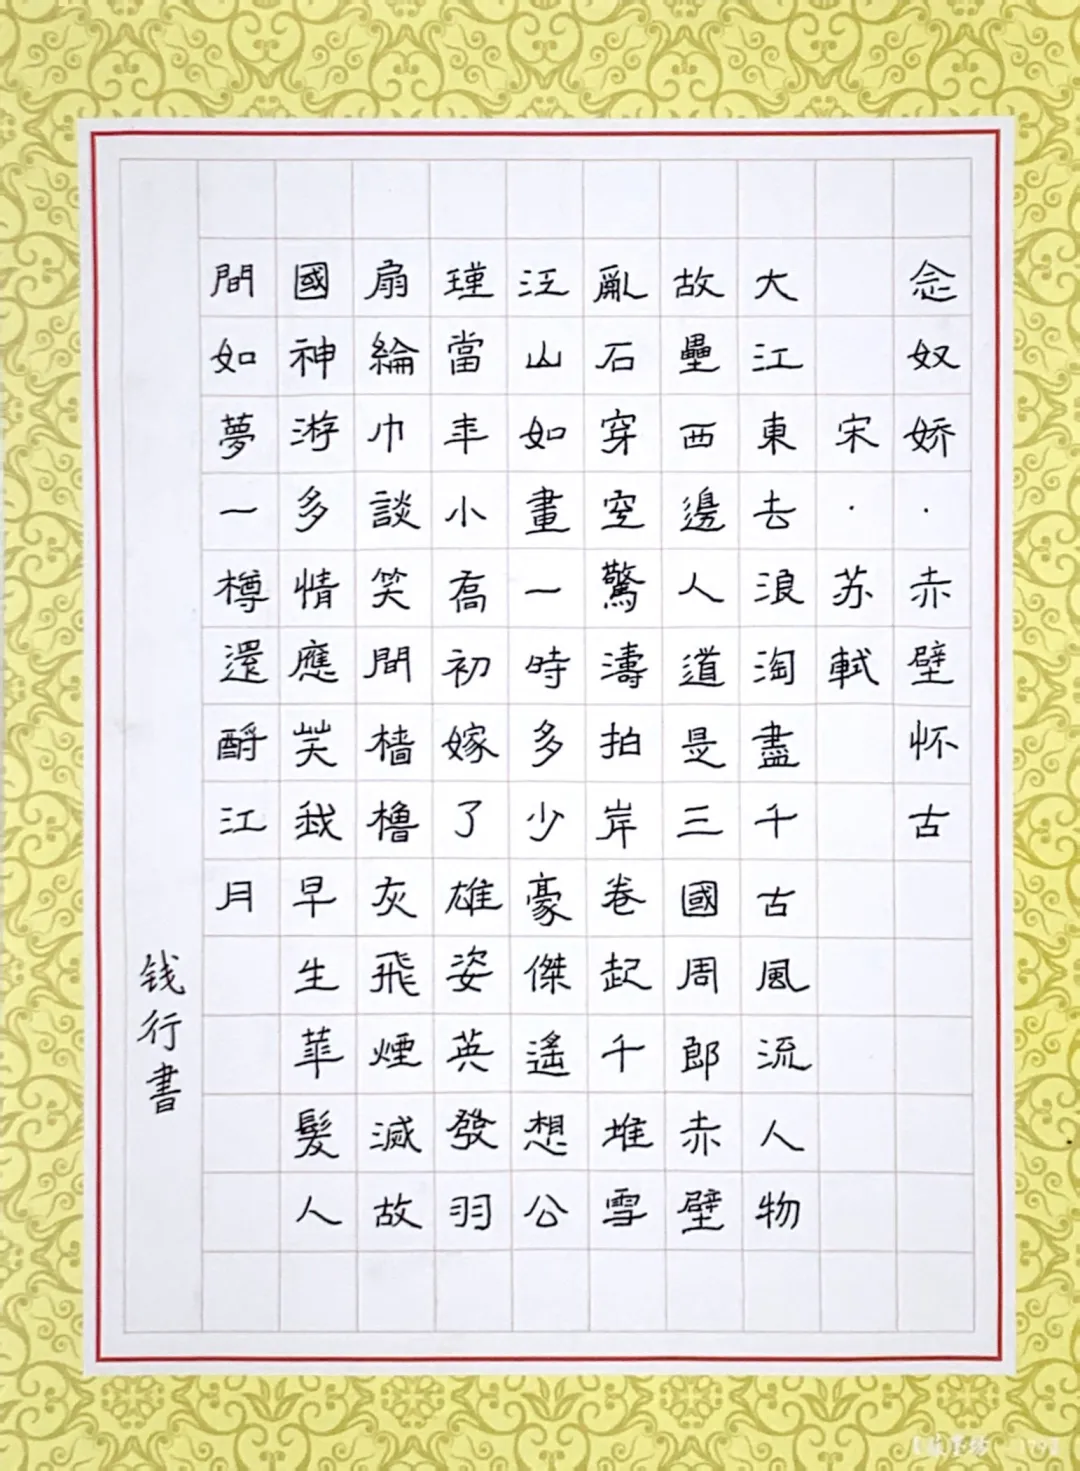 念奴娇·赤壁怀古
宋·苏轼
大江東去浪淘盡千古風流人物
故壘西邊人道是三國周郎赤壁
亂石穿空驚濤拍岸卷起千堆雪
江山如畫一時多少豪傑遙想公
瑾當年小喬初嫁了雄姿英發羽
扇綸巾談笑間檣櫓灰飛煙滅故
國神游多情應笑我早生華髮人
間如夢一樽還酹江月
钱行書